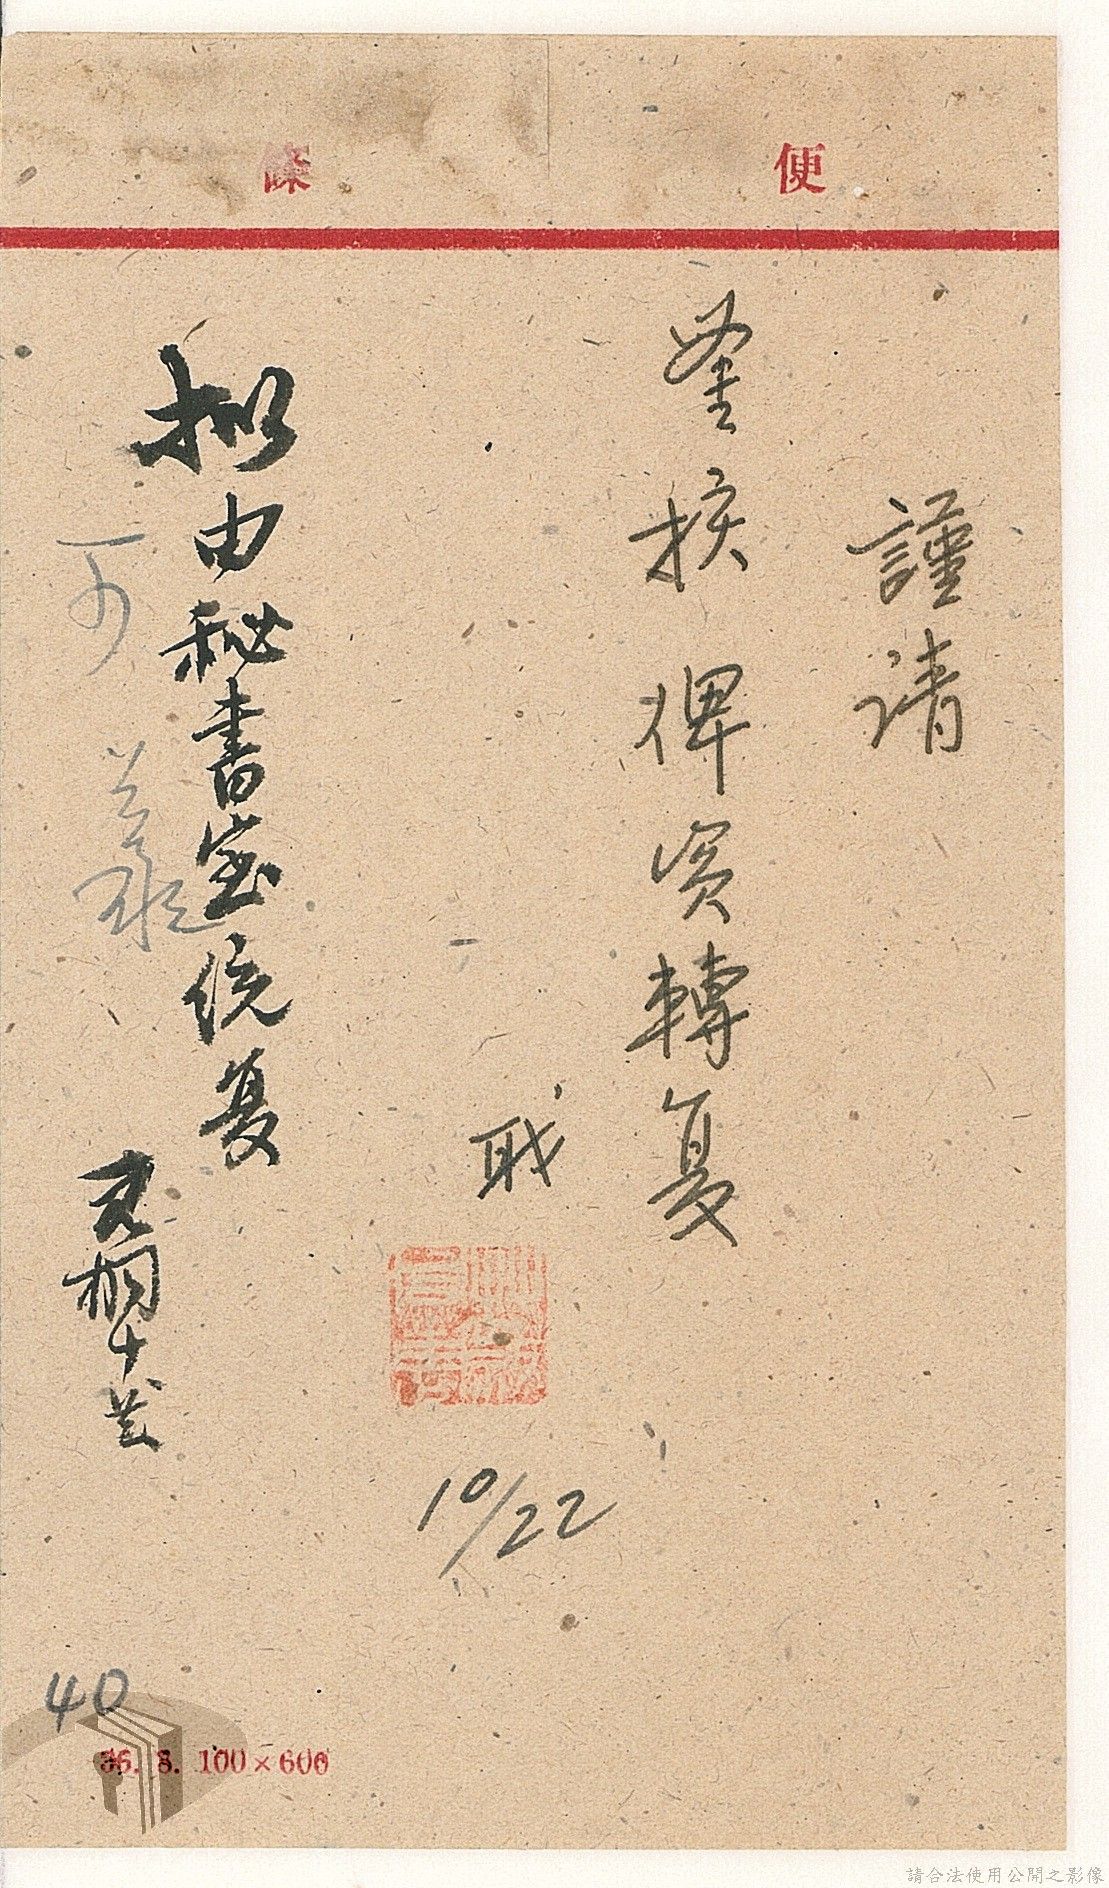 便條
謹請
鉴核俾資轉复
职
10/22
拟由秘書室统复
桐十
可
40
36. 8. 100×600
請合法使用公開之影像